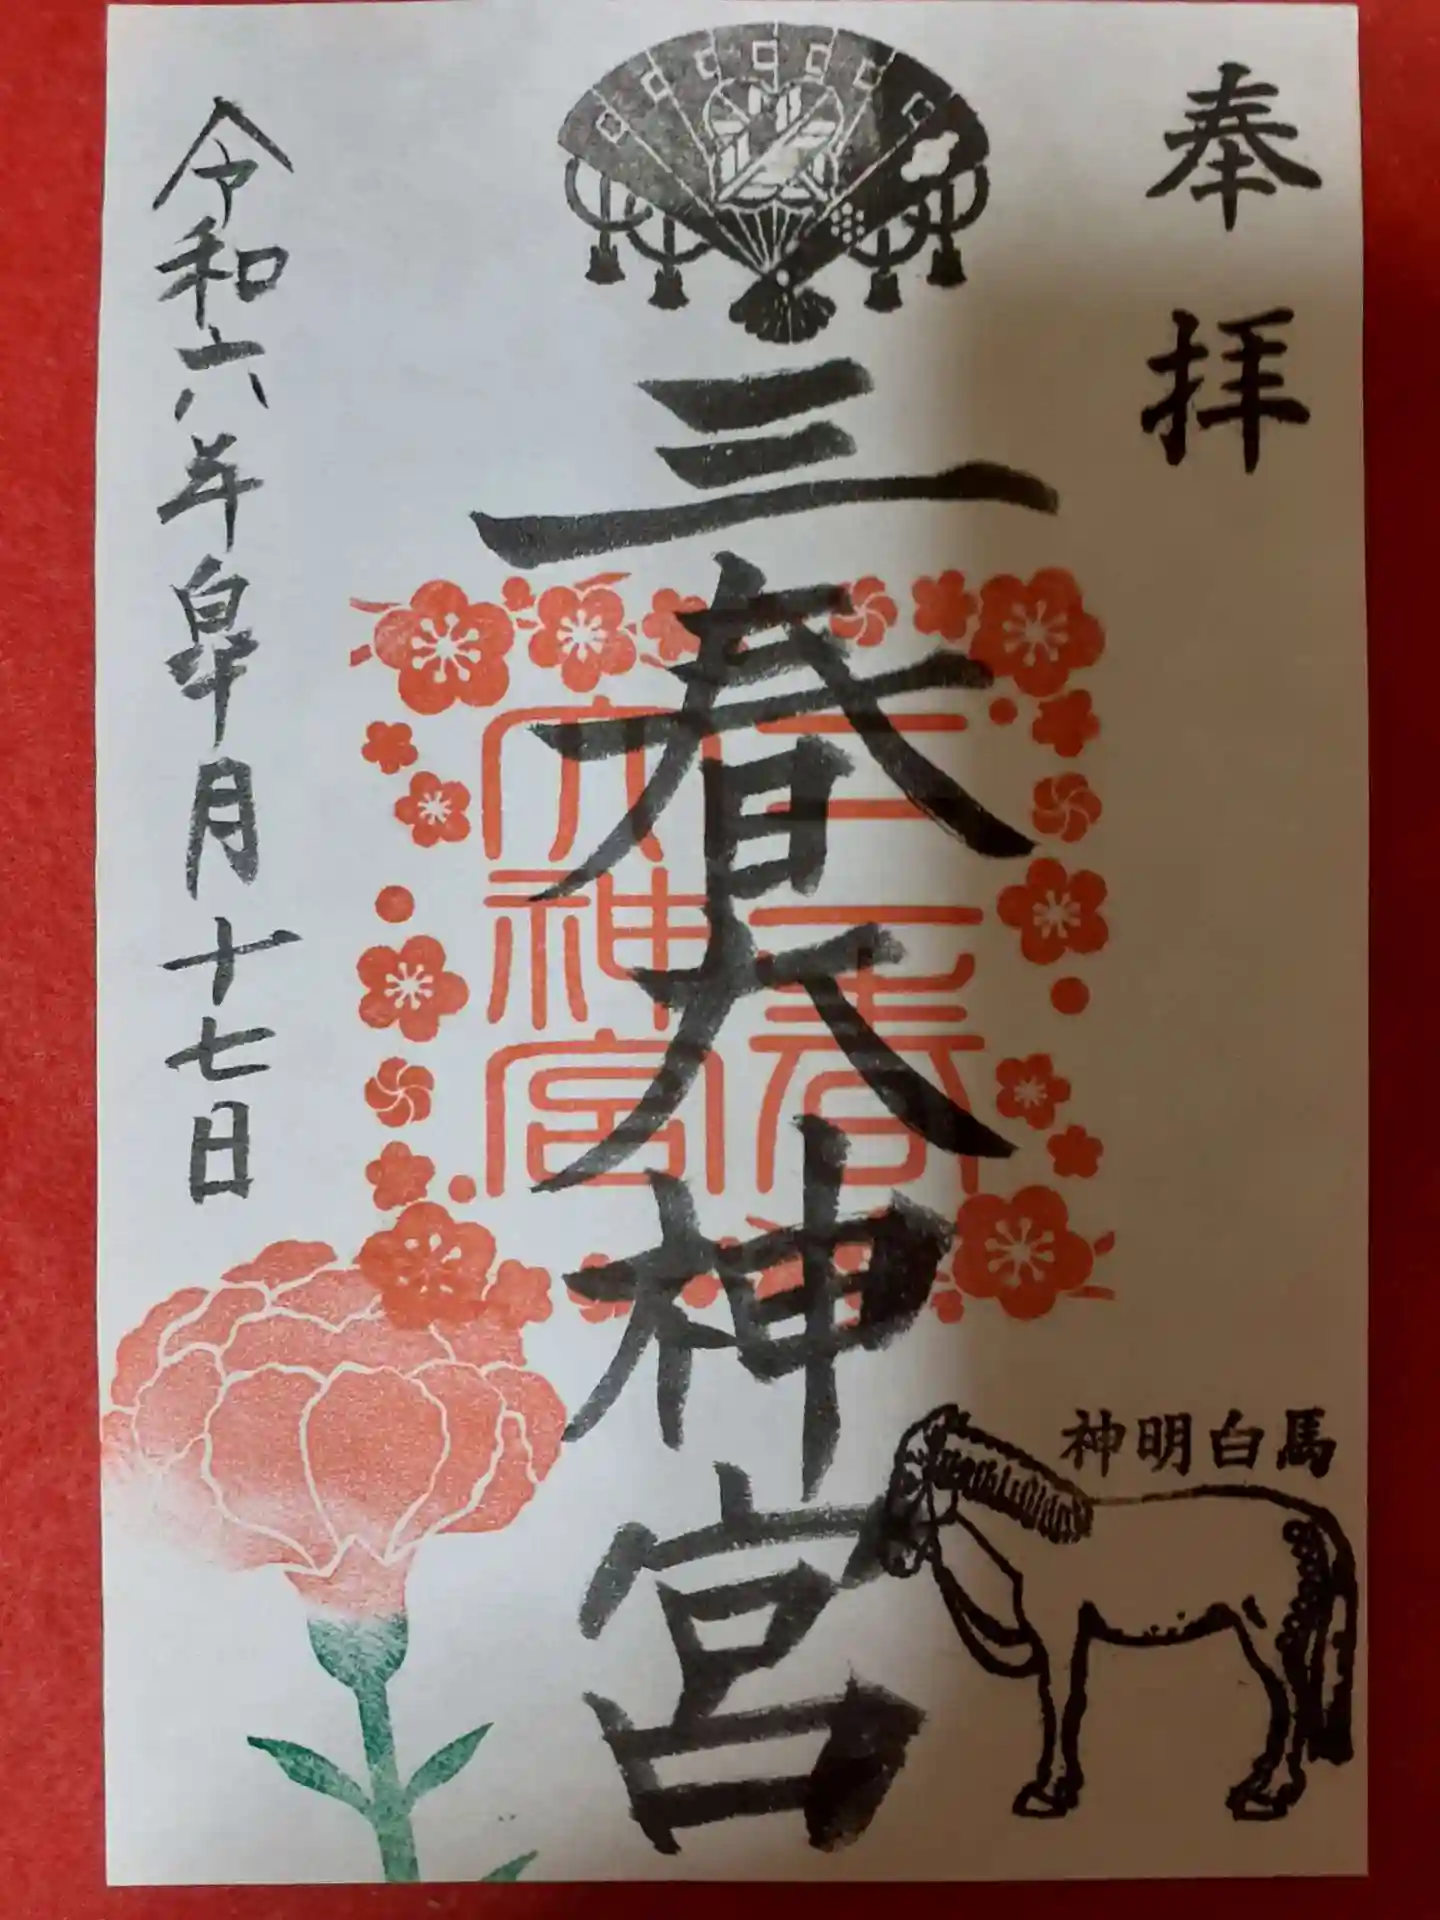 奉拝
三春大神宮
三春
大神宮
令和六年皐月十七日
神明白馬